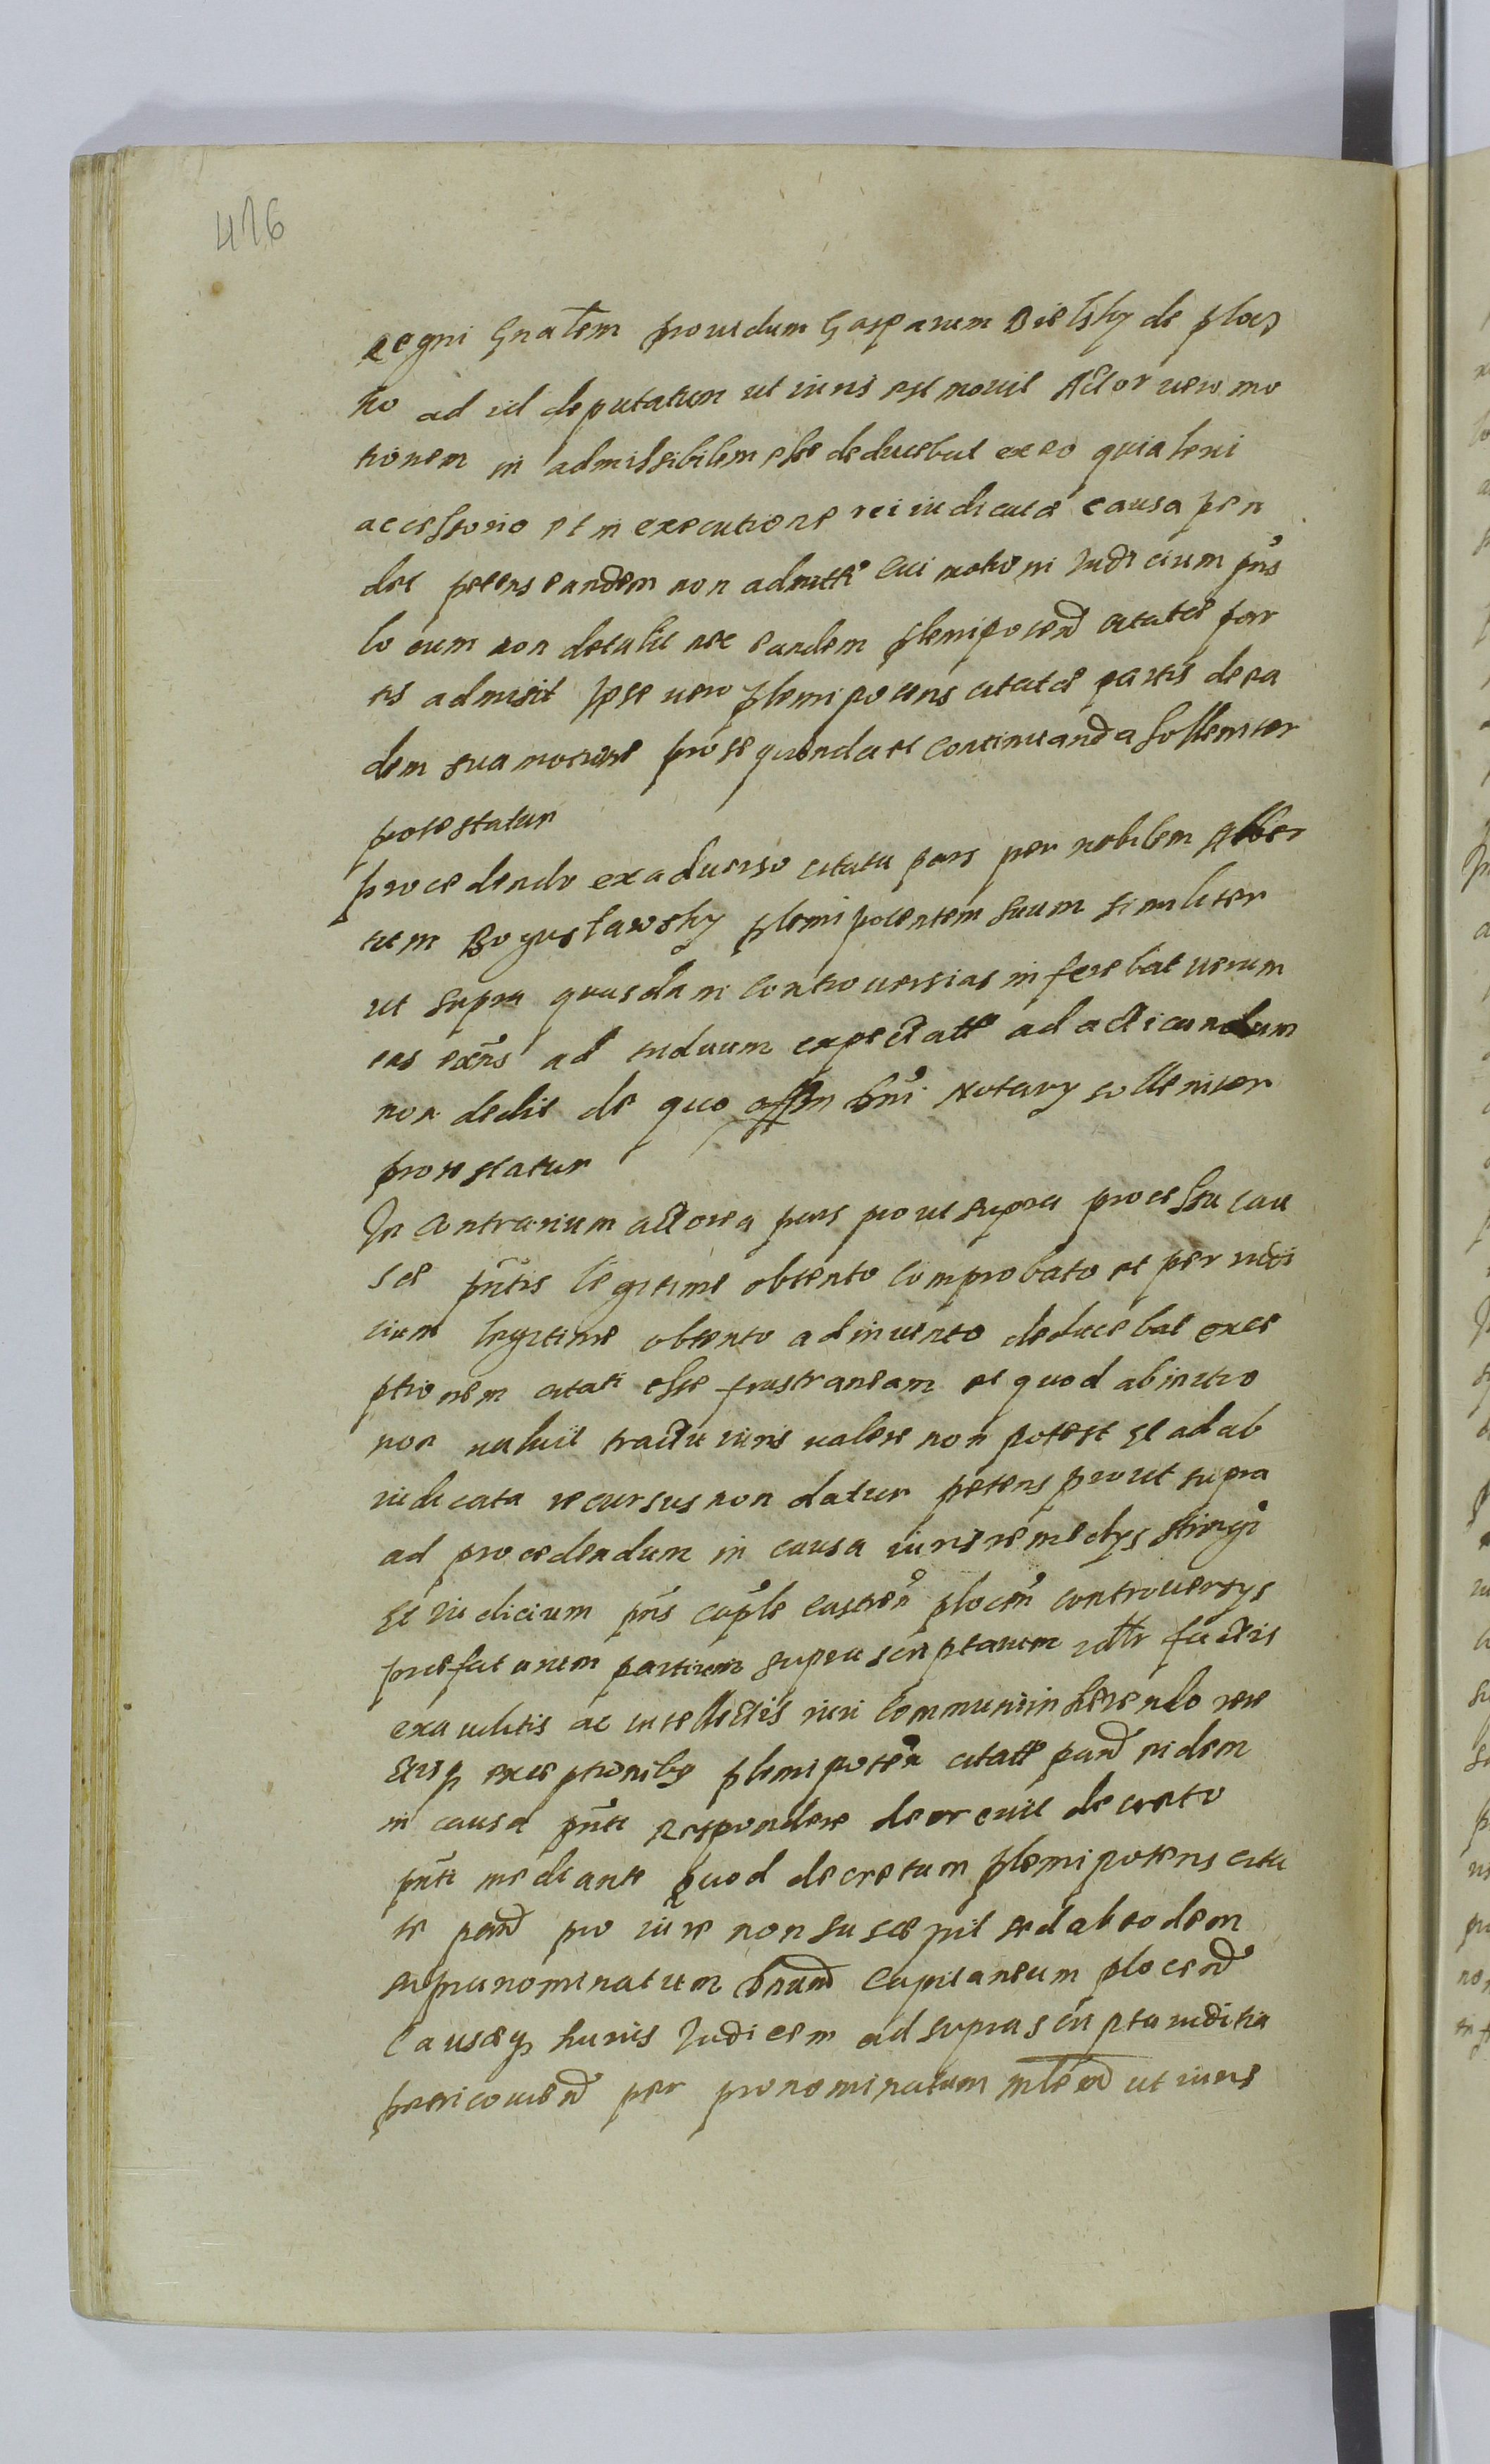 416
regni Gnalem prouidum Gasparum Bielsky de Plocz

ko ad id deputatum ut iuris est mouit Actor uero mo
tionem in admissibilem esse deducebat ex eo quia leui
accessorio et in executione rei iudicatæ causa pen
det petens eandem non admitti Cui motioni Iudicium pns
lo cum non detulit nec eandem plenipotend citatæ par
tis admisit Ipse uero plenipotens citatæ partis de ea
dem sua motione prosequenda et continuanda sollemniter
protestatur
procedendo ex aduerso citata pars per nobilem Alber
tum Boguslawsky plenipotentem suum similiter
ut supra quasdam controuersias inferebat uerum
eas extns ad triduum expectatte ad acticandum
non dedit de quo offm bni Notary sollemniter
protestatur
In contrarium actorea pars prout supra processu cau
sæ pntis legitime obtento comprobato et per iudi
cium legitime obtento adinuento deducebat exce
ptionem citati esse frustraneam et quod ab initio
non ualuit tractu iuris ualere non potest Et ad ab
iudicata recursus non datur petens prout supra
ad procedendum in causa iuris remedys stringi
Et iudicium pns caple castren plocen controuersys
præfatarum partium suprascriptarum iditr factis
exauditis ac intellectis iuri communi inhærendo reie
ctisq exceptionibq plenipoten citatte partd eidem
in causa pnti respondere decreuit decreto
pnti mediante Quod decretum plenipotens cita
te partd pro iure non suscæpit sed ab eodem
supranominatum bnum Capitaneum plocend
Causæq huius Iudicem ad suprascripta iuditia
per pronominatum mlend ut iuris